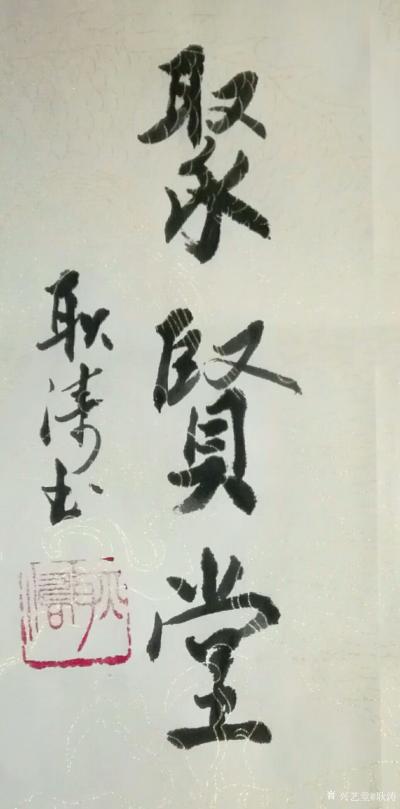 聚賢堂
耿涛书
耿濤
兴艺堂@耿涛